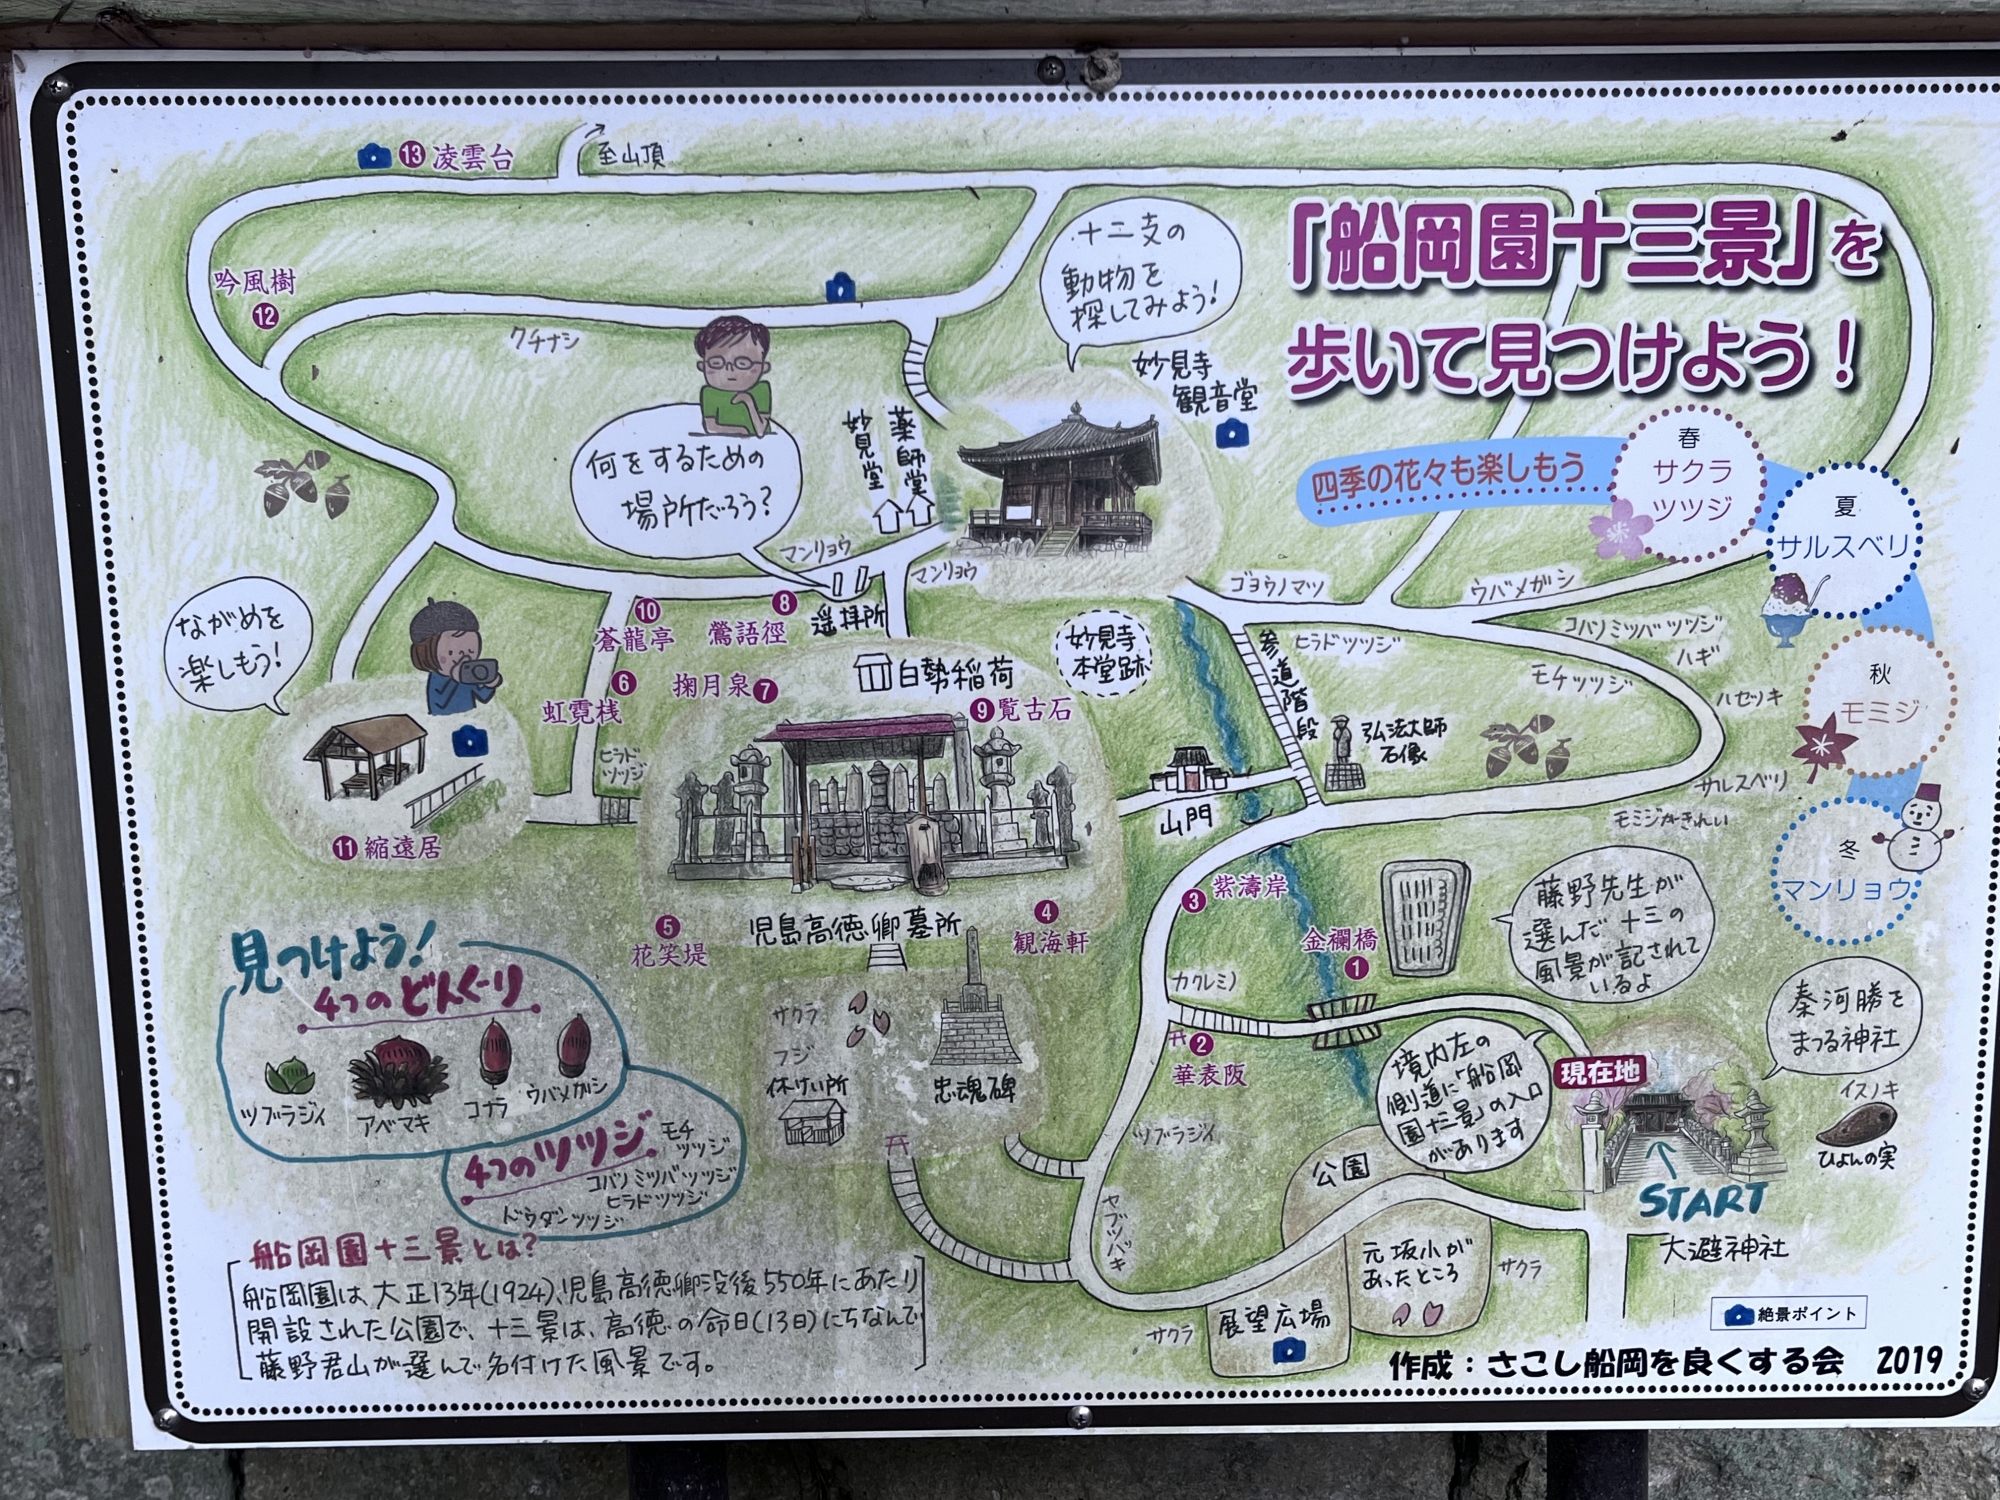 「船岡園十三景」を
歩いて見つけよう!
四季の花々も楽しもう
春
サクラ
ツツジ
夏
サルスベリ
秋
モミジ
冬
マンリョウ
⑬凌雲台
至山頂
吟風樹
⑫
クチナシ
十二支の
動物を
探してみよう!
妙見寺
観音堂
何をするための
場所だろう?
妙見堂
薬師堂
マンリョウ
マンリョウ
⑩
蒼龍亭
⑧
鶯語徑
遥拝所
ながめを
楽しもう!
⑥
虹霓桟
掬月泉⑦
白勢稲荷
⑨覧古石
妙見寺
本堂跡
ゴヨウノマツ
ウバメガシ
参道階段
ヒラドツツジ
コバノミツバツツジ
ハギ
モチツツジ
ハゼノキ
弘法大師
石像
サルスベリ
モミジがきれい
山門
ヒラド
ツツジ
⑪縮遠居
⑤
花笑堤
児島高徳卿墓所
④
観海軒
③紫濤岸
金襴橋
①
藤野先生が
選んだ十三の
風景が記されて
いるよ
カクレミノ
②
華表阪
秦河勝を
まつる神社
現在地
境内左の
側道に「船岡
園十三景」の入口
があります
イスノキ
ひょんの実
START
大避神社
サクラ
フジ
休けい所
忠魂碑
ツブラジイ
ヤブツバキ
公園
元坂小が
あったところ
サクラ
サクラ
展望広場
見つけよう!
4つのどんぐり
ツブラジイ
アベマキ
コナラ
ウバメガシ
4つのツツジ
モチ
ツツジ
コバノミツバツツジ
ヒラドツツジ
ドウダンツツジ
船岡園十三景とは?
船岡園は、大正13年(1924)、児島高徳卿没後550年にあたり
開設された公園で、十三景は、高徳の命日(13日)にちなんで
藤野君山が選んで名付けた風景です。
絶景ポイント
作成:さこし船岡を良くする会 2019